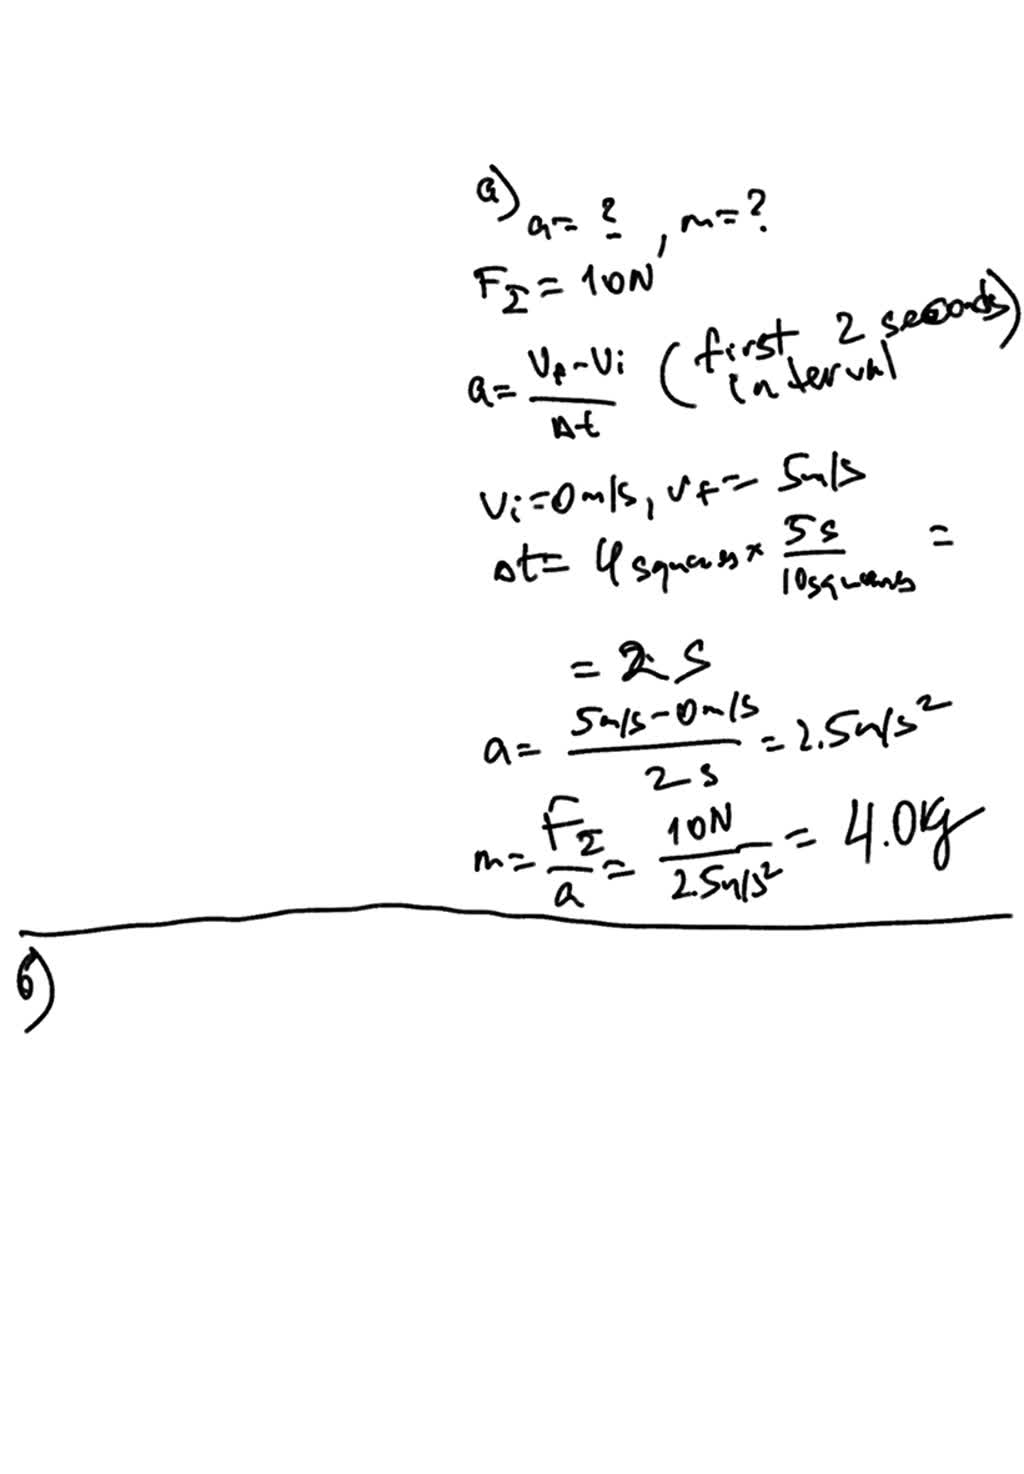 a) a = ?, m = ?
F_Σ = 10N
a = (v_f - v_i) / Δt (first 2 seconds interval)
v_i = 0 m/s, v_f = 5 m/s
Δt = 4 squares × 5 s / 10 squares =
= 2 s
a = (5 m/s - 0 m/s) / 2 s = 2.5 m/s²
m = F_Σ / a = 10N / 2.5 m/s² = 4.0 kg
б)